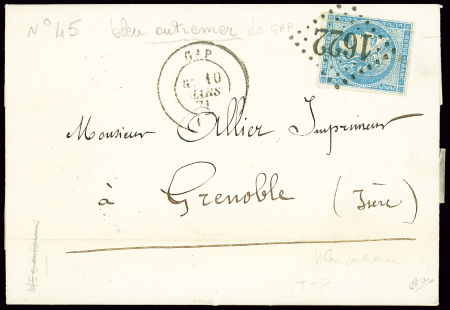 N° 45 bleu outremer de GAP
GAP
10
MARS
71
1622
Monsieur Allier Imprimeur
à Grenoble (Isère)
bleu outremer
TTB